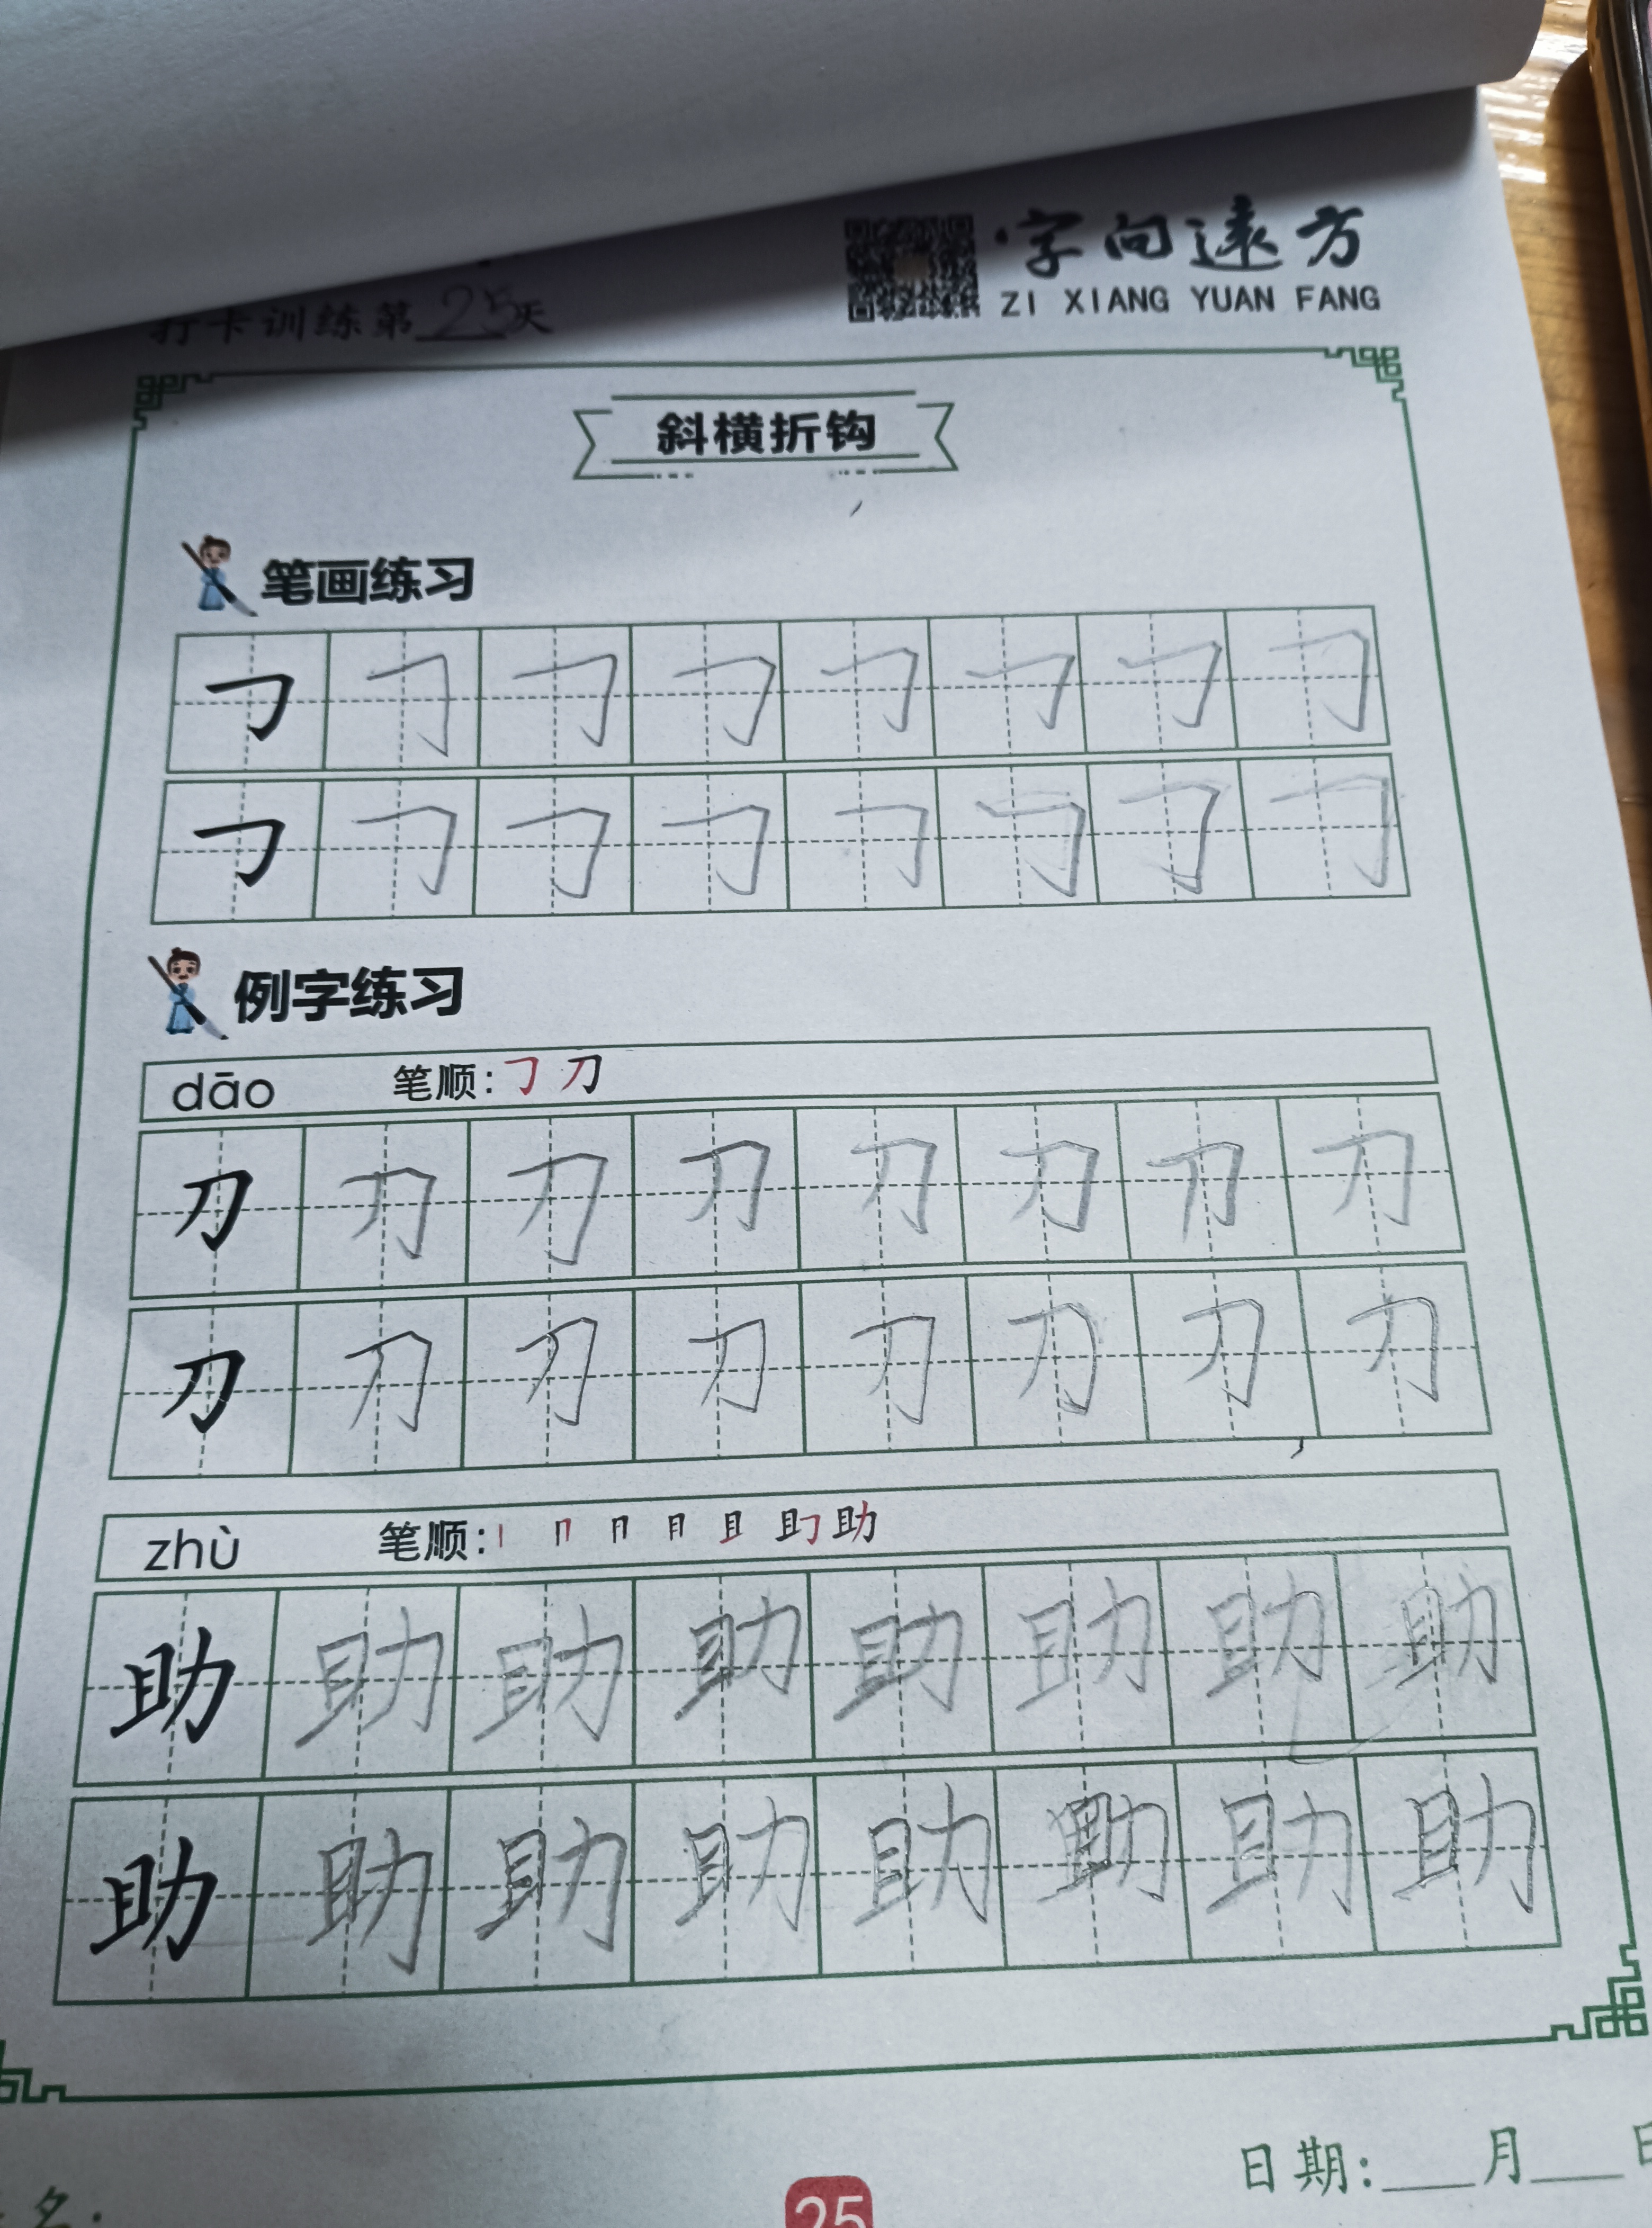 字向远方
ZI XIANG YUAN FANG
打卡训练第25天
斜横折钩
笔画练习
㇆ ㇆ ㇆ ㇆ ㇆ ㇆ ㇆ ㇆
㇆ ㇆ ㇆ ㇆ ㇆ ㇆ ㇆ ㇆
例字练习
dāo 笔顺:㇆ 刀
刀 刀 刀 刀 刀 刀 刀 刀
刀 刀 刀 刀 刀 刀 刀 刀
zhù 笔顺:
助 助 助 助 助 助 助 助
助 助 助 助 助 助 助 助
日期:___月___日
名:
25